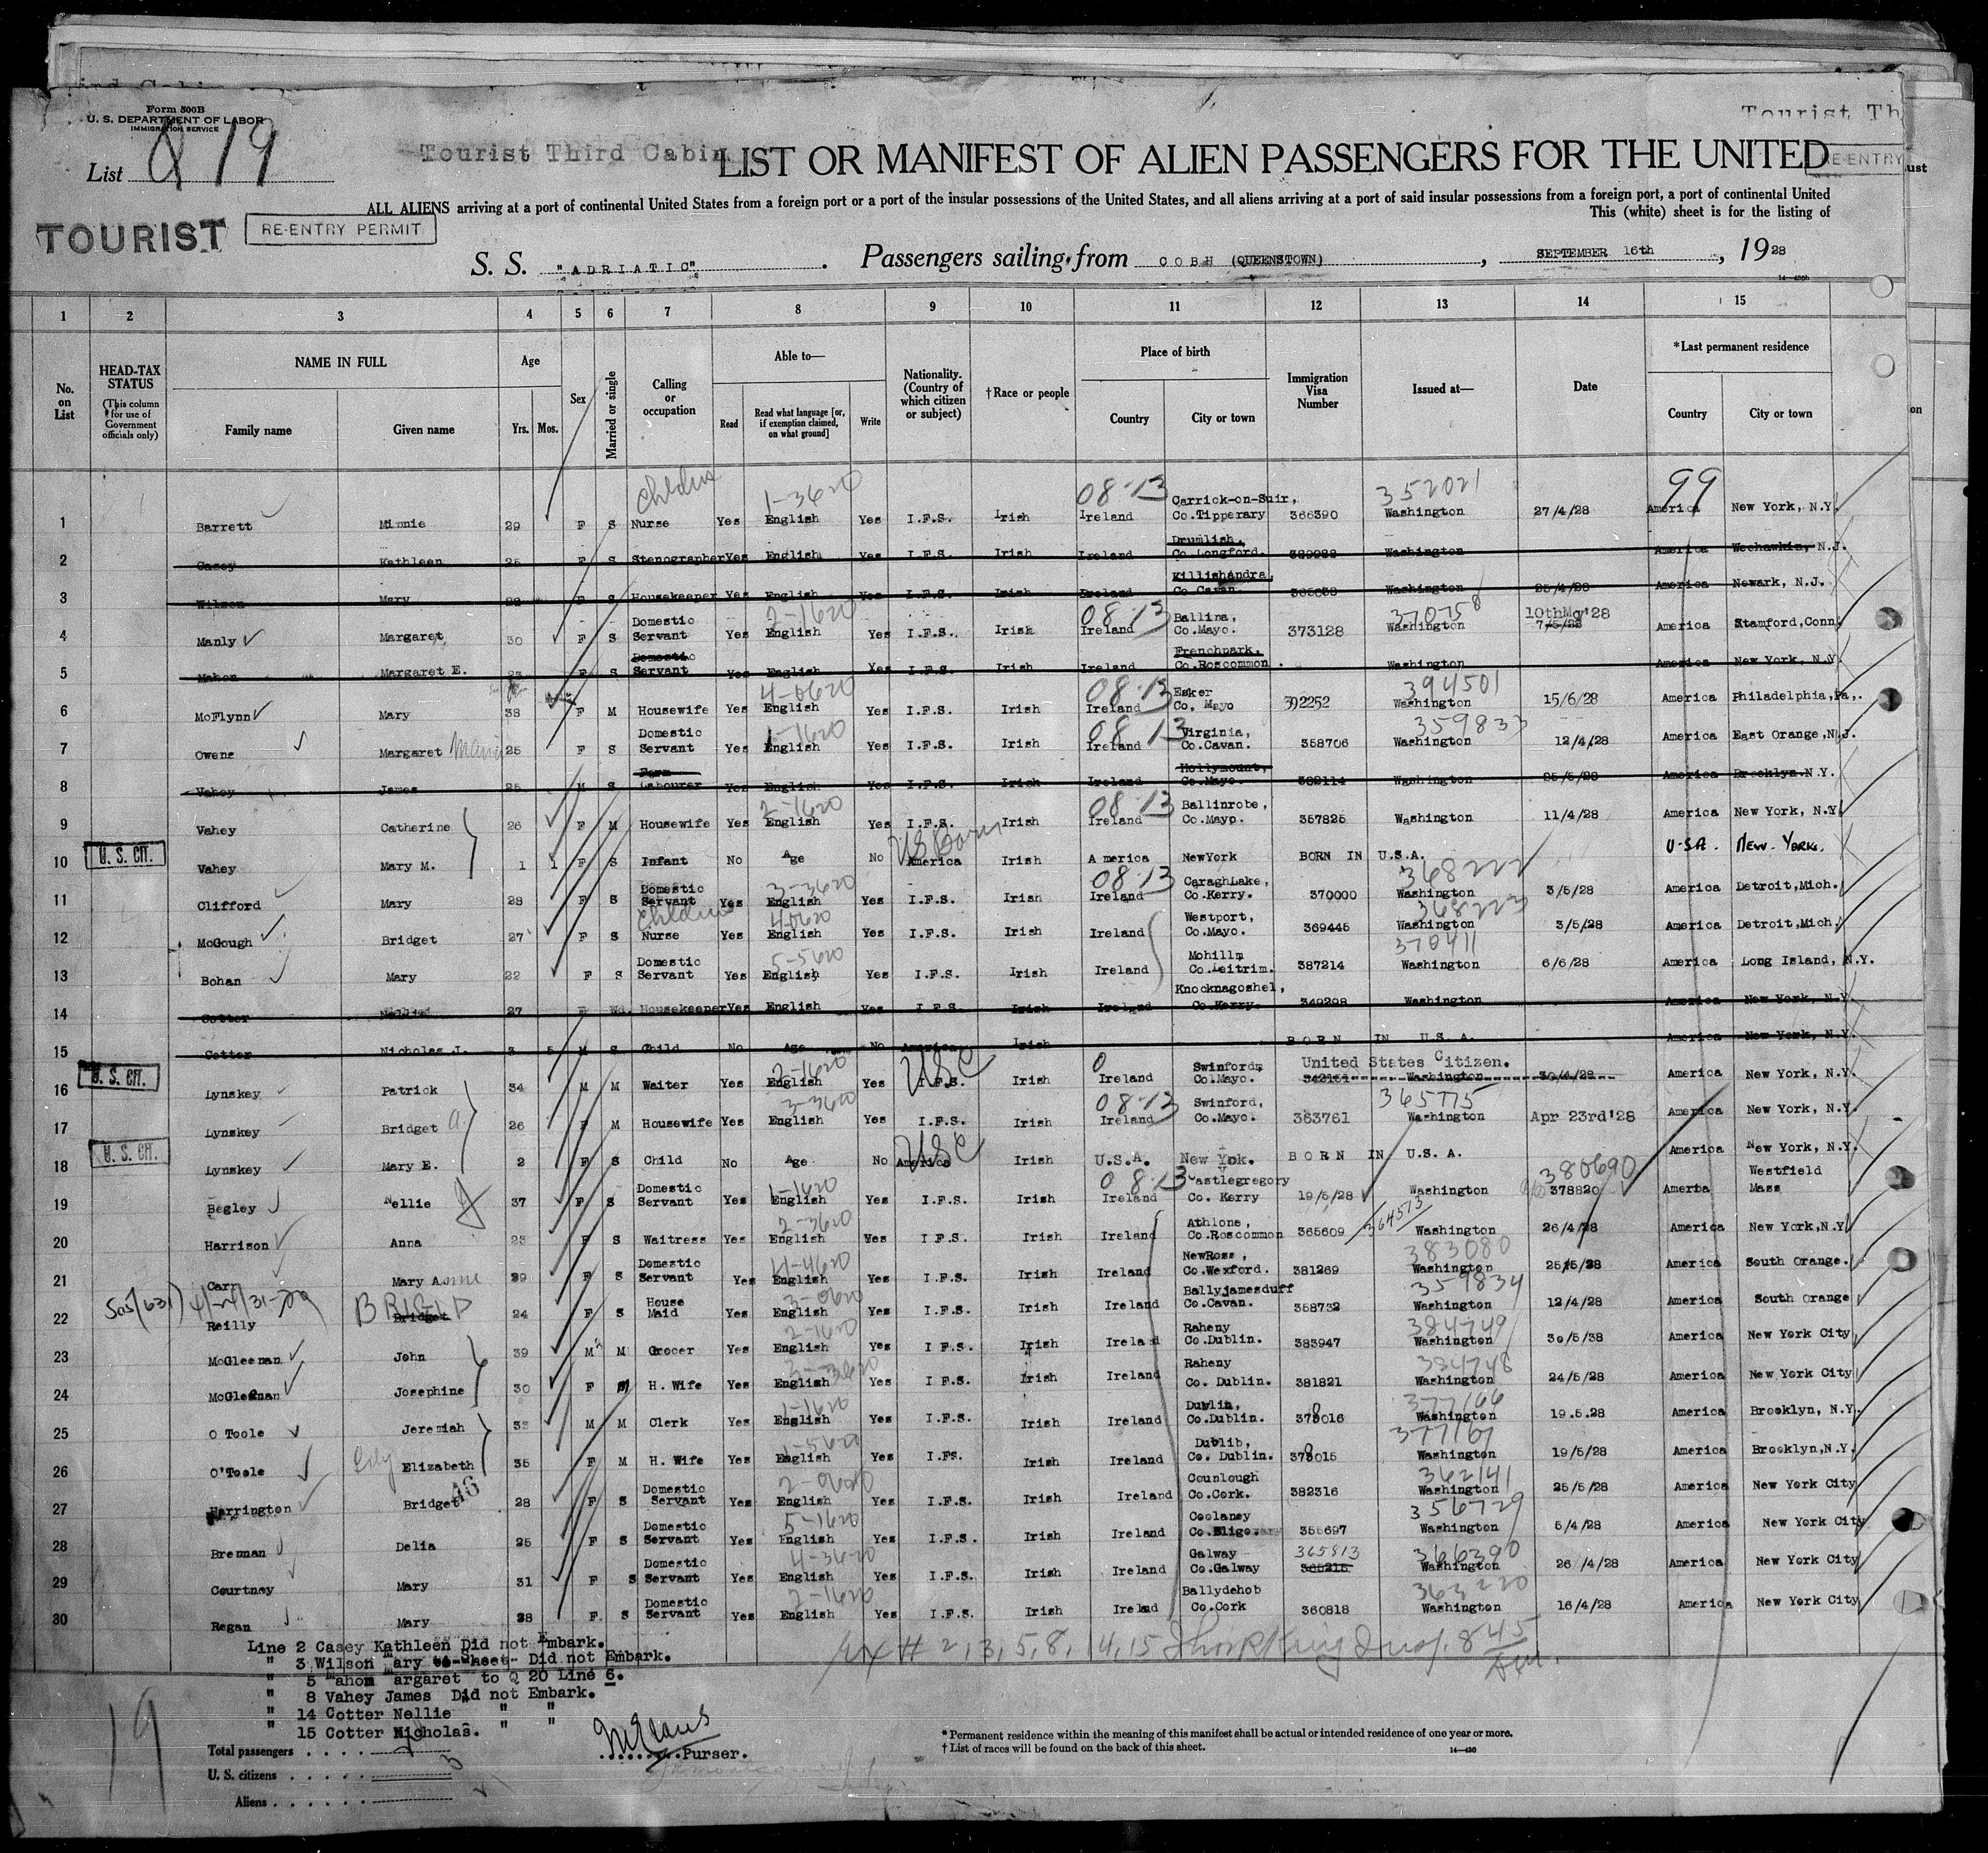 Form 500B
U. S. DEPARTMENT OF LABOR
IMMIGRATION SERVICE
List Q 19
Tourist Third Cabin
Tourist Th
LIST OR MANIFEST OF ALIEN PASSENGERS FOR THE UNITED
RE-ENTRY
ALL ALIENS arriving at a port of continental United States from a foreign port or a port of the insular possessions of the United States, and all aliens arriving at a port of said insular possessions from a foreign port, a port of continental United
This (white) sheet is for the listing of
TOURIST
RE-ENTRY PERMIT
S. S. "ADRIATIC". Passengers sailing from COBH (QUEENSTOWN), SEPTEMBER 16th, 1928
1 2 3 4 5 6 7 8 9 10 11 12 13 14 15
No. on List
HEAD-TAX STATUS (This column for use of Government officials only)
NAME IN FULL Family name Given name
Age Yrs. Mos.
Sex
Married or single
Calling or occupation
Able to— Read Read what language [or, if exemption claimed, on what ground] Write
Nationality. (Country of which citizen or subject)
†Race or people
Place of birth Country City or town
Immigration Visa Number
Issued at—
Date
*Last permanent residence Country City or town
childrs 1-3620 08-13 352021 99
1 Barrett Minnie 29 F S Nurse Yes English Yes I.F.S. Irish Ireland Carrick-on-Suir, Co.Tipperary 366390 Washington 27/4/28 America New York, N.Y.
2 Casey Kathleen 25 F S Stenographer Yes English Yes I.F.S. Irish Ireland Drumlish, Co.Longford. Washington America Weehawkin, N.J.
3 Wilson Mary F S Housekeeper Yes English Yes I.F.S. Irish Ireland Killishandra, Co.Cavan. Washington 25/4/28 America Newark, N.J.
2-1620 08-13 370758 10thMy'28
4 Manly Margaret 30 F S Domestic Servant Yes English Yes I.F.S. Irish Ireland Ballina, Co.Mayo. 373128 Washington 7/5/28 America Stamford,Conn.
5 Mahon Margaret E. F S Domestic Servant Yes English Yes I.F.S. Irish Ireland Frenchpark, Co.Roscommon. Washington America New York, N.Y.
4-0620 08-13 394501
6 McFlynn Mary 38 F M Housewife Yes English Yes I.F.S. Irish Ireland Esker Co. Mayo 392252 Washington 15/6/28 America Philadelphia,Pa,.
1-1620 08-13 359833
7 Owens Margaret Marie 25 F S Domestic Servant Yes English Yes I.F.S. Irish Ireland Virginia, Co.Cavan. 358706 Washington 12/4/28 America East Orange,N.J.
8 Vahey James 25 M S Farm Labourer Yes English Yes I.F.S. Irish Ireland Hollymount, Co.Mayo. 382114 Washington 25/5/28 America Brooklyn.N.Y.
2-1620 08-13
9 Vahey Catherine 26 F M Housewife Yes English Yes I.F.S. Irish Ireland Ballinrobe, Co.Mayo. 357825 Washington 11/4/28 America New York, N.Y.
U. S. CIT. US Born
10 Vahey Mary M. 1 1 F S Infant No Age No America Irish America NewYork BORN IN U.S.A. U-S-A. NEW-YORK.
3-3620 08-13 368222
11 Clifford Mary 28 F S Domestic Servant Yes English Yes I.F.S. Irish Ireland CaraghLake, Co.Kerry. 370000 Washington 3/5/28 America Detroit,Mich.
childrs 4-0620 368223
12 McGough Bridget 27 F S Nurse Yes English Yes I.F.S. Irish Ireland Westport, Co.Mayo. 369445 Washington 3/5/28 America Detroit,Mich.
5-5620 370411
13 Bohan Mary 22 F S Domestic Servant Yes English Yes I.F.S. Irish Ireland Mohillm Co.Leitrim. 387214 Washington 6/6/28 America Long Island, N.Y.
14 Cotter Nellie 27 F Wd. Housekeeper Yes English Yes I.F.S. Irish Ireland Knocknagoshel, Co.Kerry. 349298 Washington America New York, N.Y.
15 Cotter Nicholas J. 3 5 M S Child No Age No America Irish BORN IN U.S.A. America New York, N.Y.
U. S. CIT. 2-1620 USC United States Citizen.
16 Lynskey Patrick 34 M M Waiter Yes English Yes I.F.S. Irish Ireland Swinford, Co.Mayo. Washington 30/4/28 America New York, N.Y.
3-3620 08-13 365775
17 Lynskey Bridget a. 26 F M Housewife Yes English Yes I.F.S. Irish Ireland Swinford, Co.Mayo. 363761 Washington Apr 23rd'28 America New York, N.Y.
U. S. CIT. USC
18 Lynskey Mary E. 2 F S Child No Age No America Irish U.S.A. New Yok. BORN IN U.S.A. America New York, N.Y.
1-1620 08-13 380690
19 Begley Nellie 37 F S Domestic Servant Yes English Yes I.F.S. Irish Ireland Castlegregory Co. Kerry 19/5/28 Washington 378820 Ameria Westfield Mass
2-3620 364573
20 Harrison Anna 23 F S Waitress Yes English Yes I F.S. Irish Ireland Athlone, Co.Roscommon 365609 Washington 26/4/28 America New York,N.Y.
4-4620 383080
21 Carr Mary Anne 29 F S Domestic Servant Yes English Yes I.F.S. Irish Ireland NewRoss, Co.Wexford. 381269 Washington 25/5/28 America South Orange.
BRIGID 3-0620 359834
22 Reilly Bridget 24 F S House Maid Yes English Yes I.F.S. Irish Ireland Ballyjamesduff Co.Cavan. 358732 Washington 12/4/28 America South Orange
2-1620 384749
23 McGleenan John 39 M M Grocer Yes English Yes I F.S. Irish Ireland Raheny Co.Dublin. 383947 Washington 30/5/38 America New York City
3-3620 384748
24 McGleenan Josephine 30 F M H. Wife Yes English Yes I F.S. Irish Ireland Raheny Co. Dublin. 381821 Washington 24/5/28 America New York City
1-1620 377166
25 O Toole Jeremiah M M Clerk Yes English Yes I.F.S. Irish Ireland Dublin, Co.Dublin. Washington 19.5.28 America Brooklyn, N.Y.
1-5620 377167
26 O'Toole Lily Elizabeth 35 F M H. Wife Yes English Yes I.Fs. Irish Ireland Dublib, Co. Dublin. Washington 19/5/28 America Brooklyn,N.Y.
2-0620 362141
27 Harrington Bridget 28 F S Domestic Servant Yes English Yes I.F.S. Irish Ireland Counlough Co.Cork. 382316 Washington 25/5/28 America New York City
5-1620 356729
28 Brennan Delia 25 F S Domestic Servant Yes English Yes I.F.S. Irish Ireland Coolaney Co.Sligo. 355697 Washington 5/4/28 America New York City
4-3620 365813 366390
29 Courtney Mary 31 F S Domestic Servant Yes English Yes I.F.S. Irish Ireland Galway Co.Galway 365215 Washington 26/4/28 America New York City
2-1620 363220
30 Regan Mary 28 F. S Domestic Servant Yes English Yes I.F.S. Irish Ireland Ballydehob Co.Cork 360818 Washington 16/4/28 America New York City
Line 2 Casey Kathleen Did not Embark.
" 3 Wilson Mary Did not Embark.
" 5 Mahon Margaret to Q 20 Line 6.
" 8 Vahey James Did not Embark.
" 14 Cotter Nellie " "
" 15 Cotter Nicholas. " "
# 2, 3, 5, 8, 14, 15
19
Total passengers
U. S. citizens
Aliens
Purser.
* Permanent residence within the meaning of this manifest shall be actual or intended residence of one year or more.
† List of races will be found on the back of this sheet.
14—430